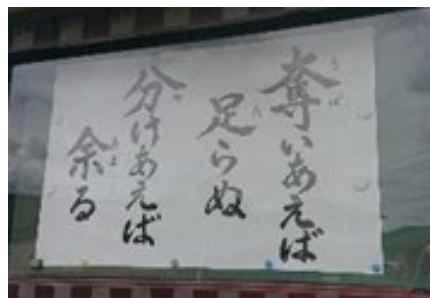 奪いあえば
足らぬ
分けあえば
余る